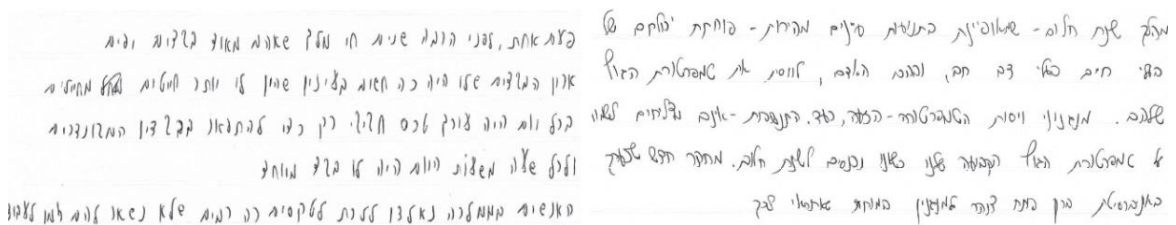 מהלך שנת חלום - שמאופיינת בתנועות עיניים מהירות - פוחתת יכולתם של
בעלי חיים בעלי דם חם, ובהם האדם, לווסת את טמפרטורת הגוף
שלהם. מנגנוני ויסות הטמפרטורה - הזעה, רעד, התנשפות - אינם מצליחים לשמור
על טמפרטורת הגוף הקבועה שלנו כשאנו נכנסים לשנת חלום. מחקר חדש שנערך
באוניברסיטת ברן פתח צוהר למנגנון המוחי שאחראי לכך
פעם אחת, לפני הרבה שנים חי מלך שאהב מאוד בגדים יפים
ארון הבגדים שלו היה כה חשוב בעיניו שהיו לו יותר חייטים מחיילים
בכל יום היה עורך טקס חגיגי רק כדי להתפאר בבגדיו המהודרים
ולכל שעה משעות היום היה לו בגד מיוחד
האנשים בממלכה נאלצו ללכת לטקסים כה רבים שלא נשאר להם זמן לעבוד